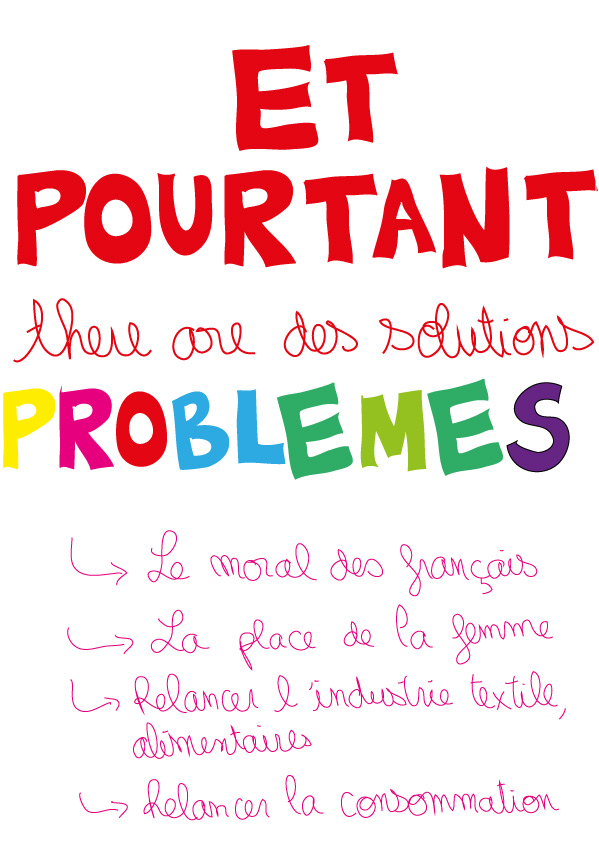 ET
POURTANT
there are des solutions
PROBLEMES
Le moral des français
La place de la femme
Relancer l'industrie textile,
alimentaires
Relancer la consommation